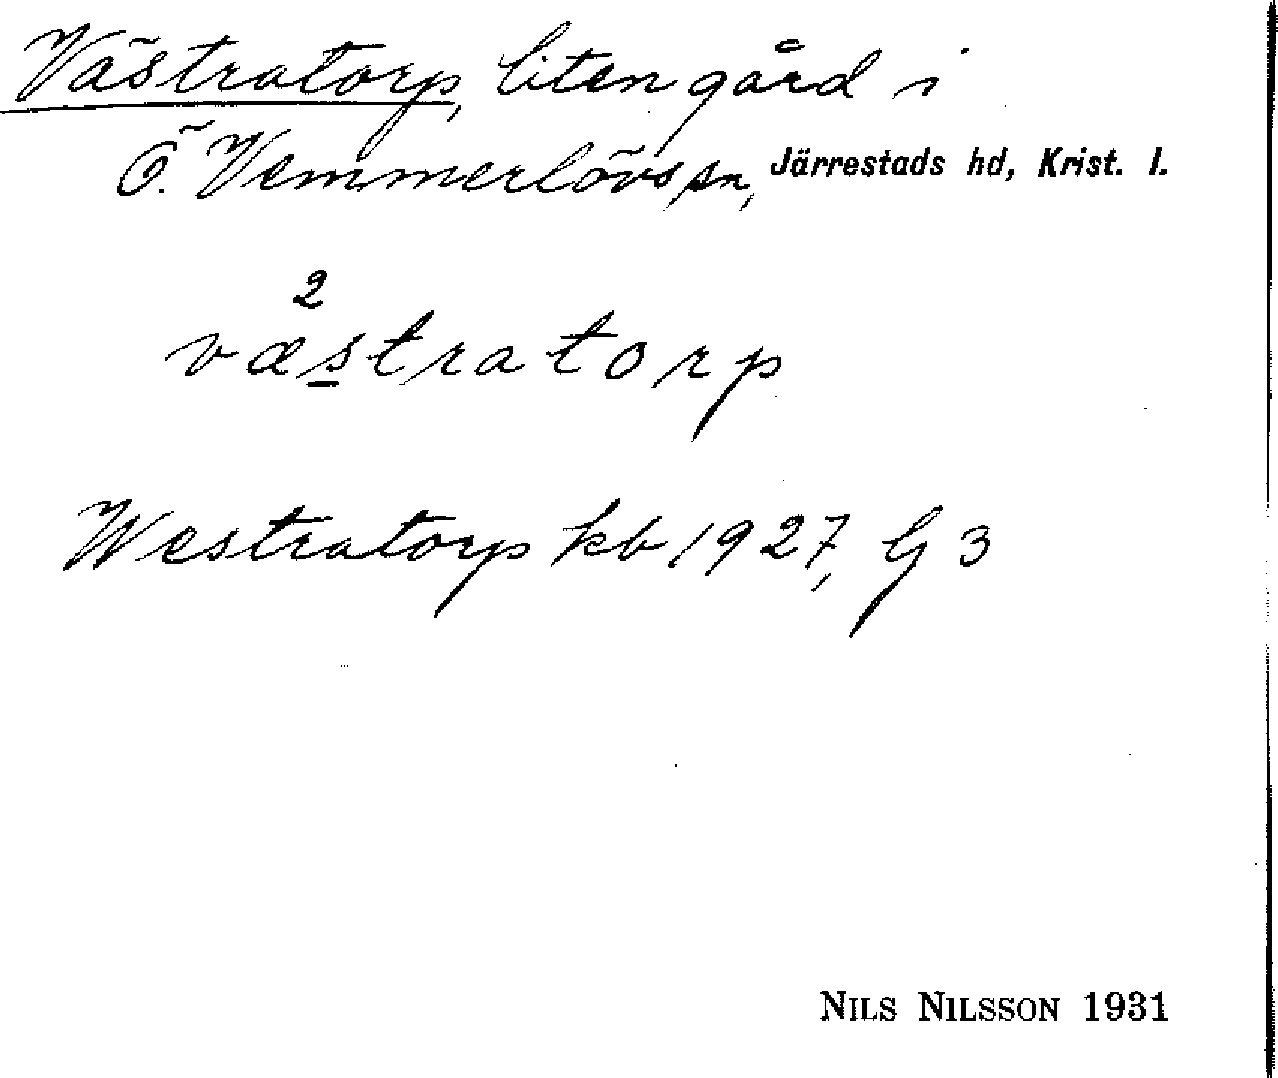 Västratorp, liten gård i
Ö. Vemmerlövs sn, Järrestads hd, Krist. l.
2
væstratorp
Westratorp kb 1927, G 3
NILS NILSSON 1931